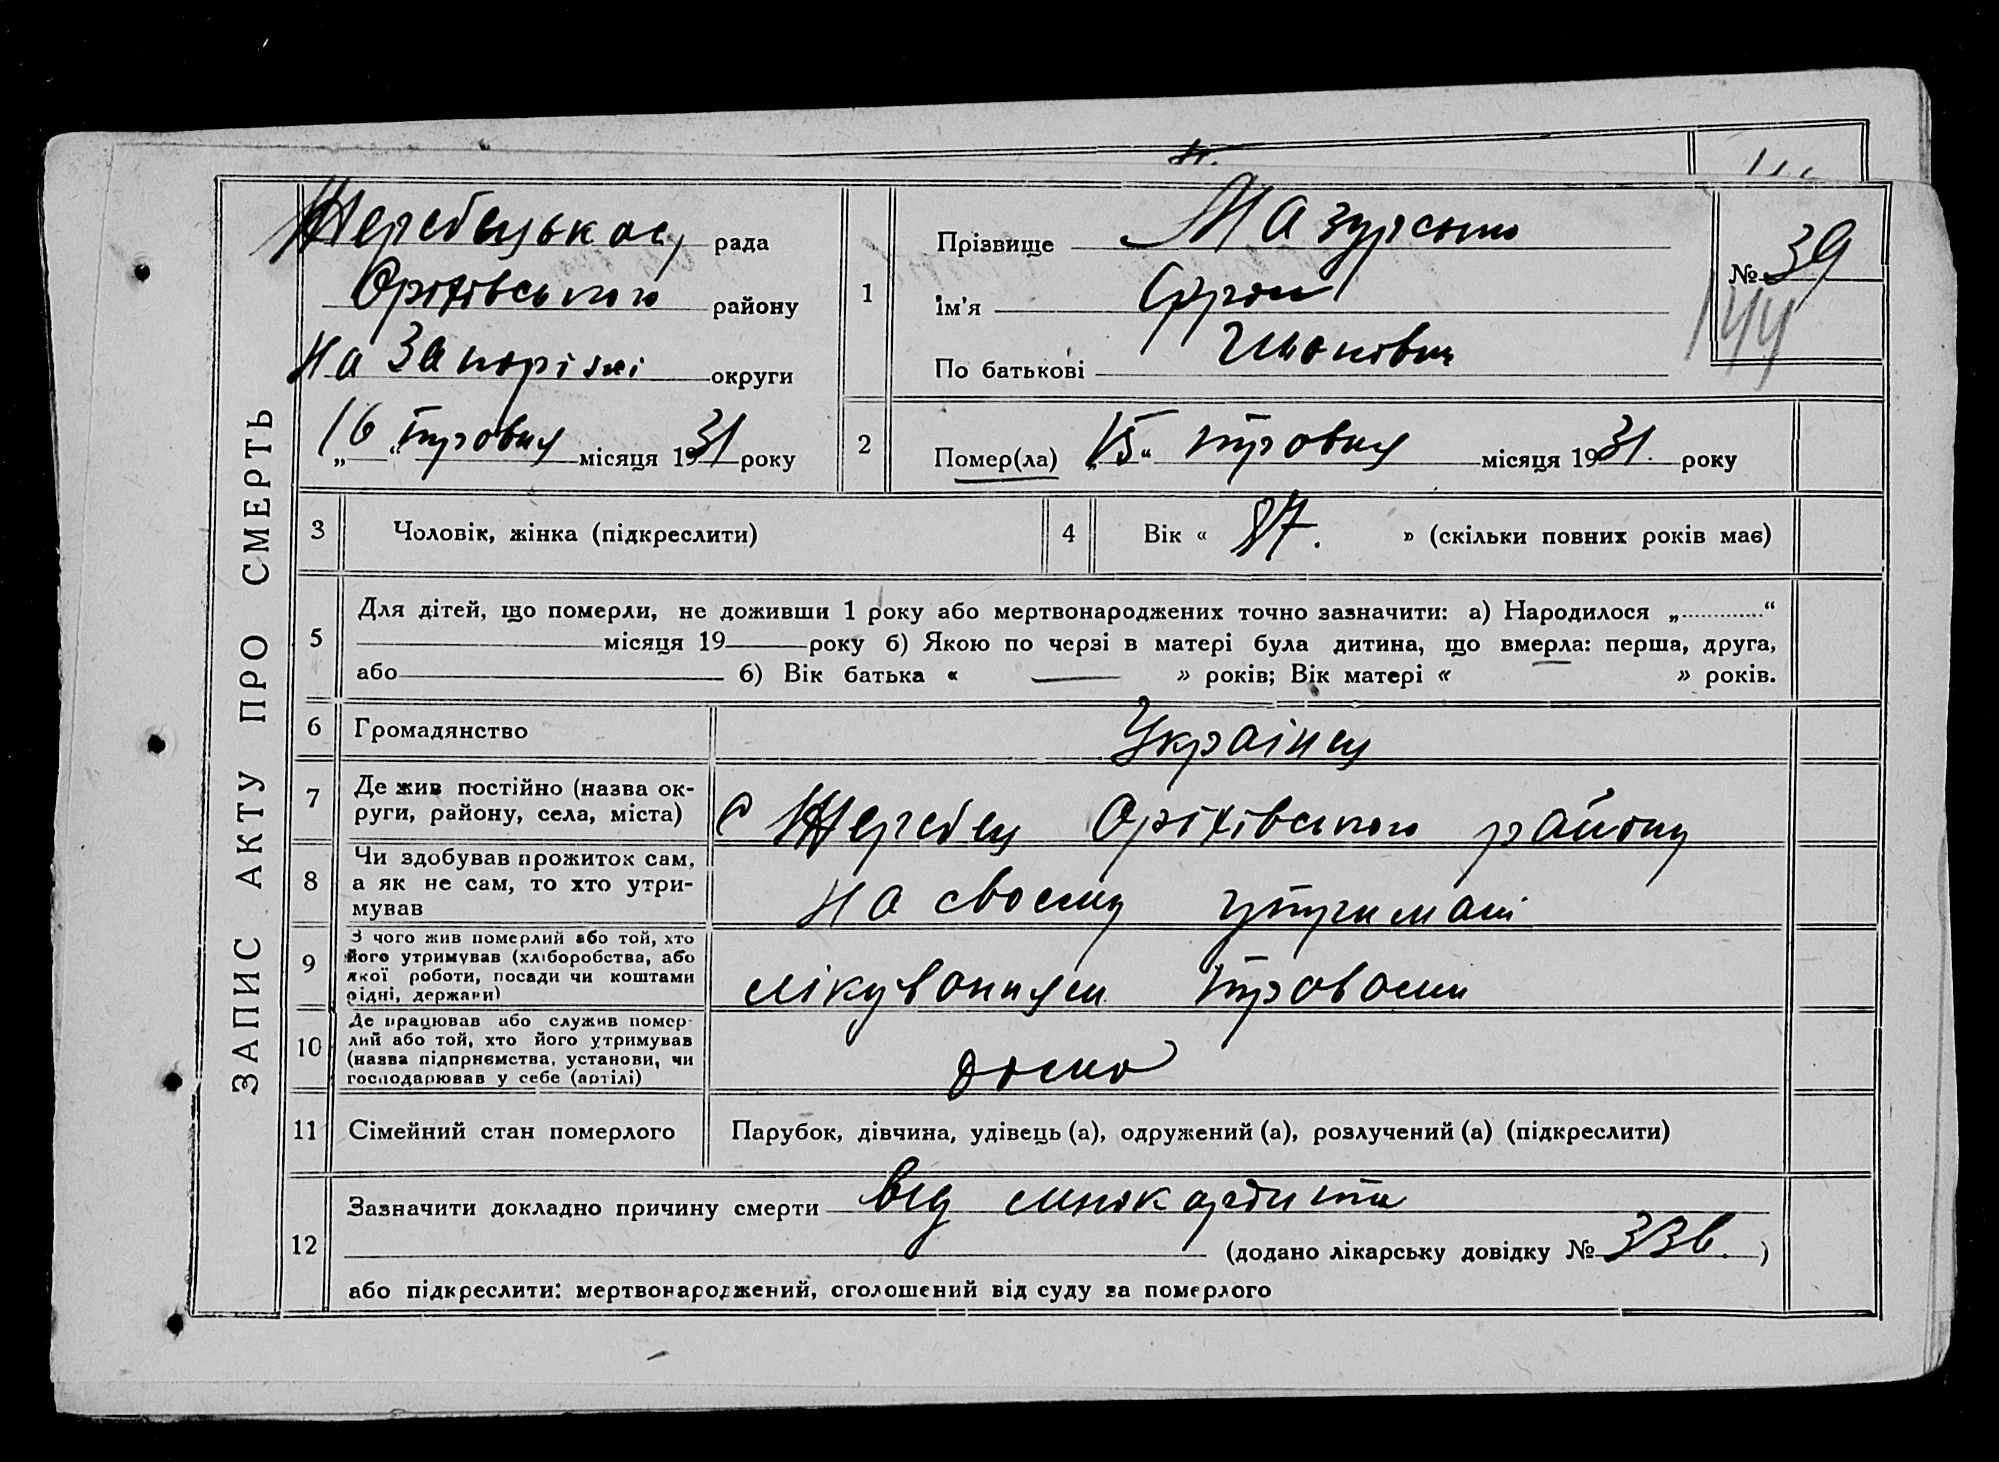 ЗАПИС АКТУ ПРО СМЕРТЬ
Жеребецької рада
Оріхівського району
на Запоріжі округи
„16“ травня місяця 1931 року
1
Прізвище Мазурсько
Ім'я
По батькові
№ 39
144
2
Помер(ла) „15“ травня місяця 1931. року
3 Чоловік, жінка (підкреслити)
4 Вік « 87. » (скільки повних років має)
5 Для дітей, що померли, не доживши 1 року або мертвонароджених точно зазначити: а) Народилося „ “
місяця 19 року б) Якою по черзі в матері була дитина, що вмерла: перша, друга,
або б) Вік батька « — » років; Вік матері « » років.
6 Громадянство Українец
7 Де жив постійно (назва ок-
руги, району, села, міста) с Жеребец Оріхівського району
8 Чи здобував прожиток сам,
а як не сам, то хто утри-
мував на своему утримані
9 З чого жив померлий або той, хто
його утримував (хліборобства, або
якої роботи, посади чи коштами
рідні, держави) лікуванням травами
10 Де працював або служив помер-
лий або той, хто його утримував
(назва підприємства, установи, чи
господарював у себе (артілі) дома
11 Сімейний стан померлого Парубок, дівчина, удівець (а), одружений (а), розлучений (а) (підкреслити)
12 Зазначити докладно причину смерти від миокардита
(додано лікарську довідку № 336. )
або підкреслити: мертвонароджений, оголошений від суду за померлого